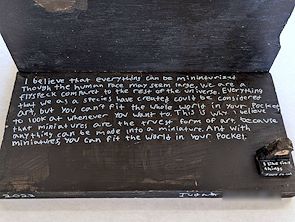 I believe that everything can be miniaturized.
Though the human race may seem large, we are a
flyspeck compared to the rest of the universe. Everything
that we as a species have created could be considered
art, but you can't fit the whole world in your pocket
to look at whenever you want to. This is why I believe
that miniatures are the truest form of art, because
anything can be made into a miniature. And with
miniatures, you can fit the world in your pocket.
I like tiny
things
2023
Judah